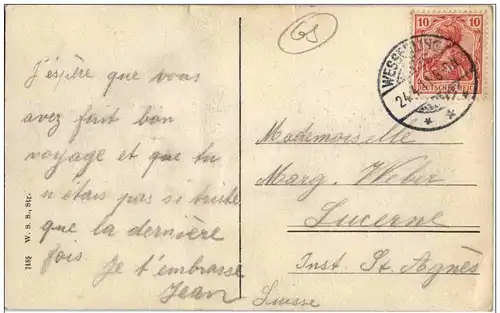 GS
10 10
DEUTSCHES REICH
J'espère que vous
avez fait bon
voyage et que tu
n'étais pas si triste
que la dernière
fois. Je t'embrasse
Jean
Mademoiselle
Marg. Weber
Lucerne
Inst. St. Agnès
Suisse
7485 W. S. S., Stg.